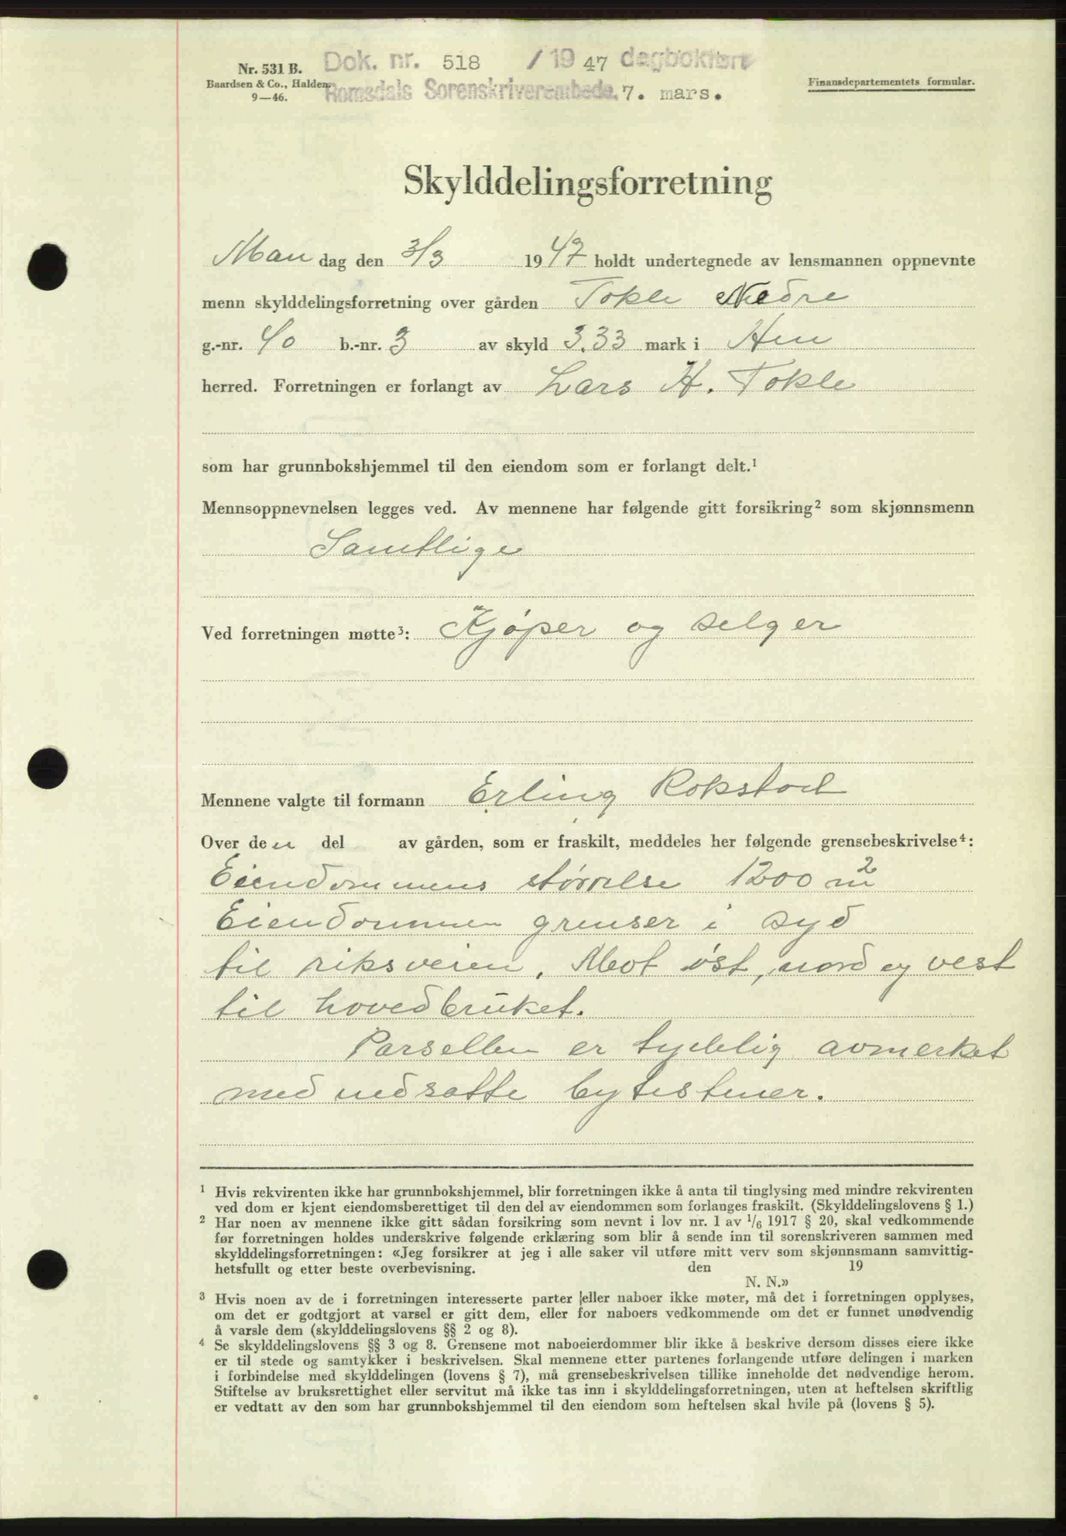 Nr. 531 B.
Baardsen & Co., Halden.
9—46.
Dok. nr. 518 / 19 47 dagbokført
Romsdals Sorenskriverembede, 7. mars.
Finansdepartementets formular.
Skylddelingsforretning
Man dag den 3/3 1947 holdt undertegnede av lensmannen oppnevnte
menn skylddelingsforretning over gården Tokle Nedre
g.-nr. 40 b.-nr. 3 av skyld 3.33 mark i Hen
herred. Forretningen er forlangt av Lars H. Tokle
som har grunnbokshjemmel til den eiendom som er forlangt delt.¹
Mennsoppnevnelsen legges ved. Av mennene har følgende gitt forsikring² som skjønnsmenn
Samtlige
Ved forretningen møtte³: Kjøper og selger
Mennene valgte til formann Erling Rokstad
Over den del av gården, som er fraskilt, meddeles her følgende grensebeskrivelse⁴:
Eiendommens størrelse 1200 m²
Eiendommen grenser i syd
til riksveien. Mot øst, nord og vest
til hovedbruket.
Parsellen er tydelig avmerket
med nedsatte bytestener.
¹ Hvis rekvirenten ikke har grunnbokshjemmel, blir forretningen ikke å anta til tinglysing med mindre rekvirenten
ved dom er kjent eiendomsberettiget til den del av eiendommen som forlanges fraskilt. (Skylddelingslovens § 1.)
² Har noen av mennene ikke gitt sådan forsikring som nevnt i lov nr. 1 av 1/6 1917 § 20, skal vedkommende
før forretningen holdes underskrive følgende erklæring som blir å sende inn til sorenskriveren sammen med
skylddelingsforretningen: «Jeg forsikrer at jeg i alle saker vil utføre mitt verv som skjønnsmann samvittig-
hetsfullt og etter beste overbevisning. den 19
N. N.»
³ Hvis noen av de i forretningen interesserte parter eller naboer ikke møter, må det i forretningen opplyses,
om det er godtgjort at varsel er gitt dem, eller for naboers vedkommende om det er funnet unødvendig
å varsle dem (skylddelingslovens §§ 2 og 8).
⁴ Se skylddelingslovens §§ 3 og 8. Grensene mot naboeierdommer blir ikke å beskrive dersom disses eiere ikke
er til stede og samtykker i beskrivelsen. Skal mennene etter partenes forlangende utføre delingen i marken
i forbindelse med skylddelingen (lovens § 7), må grensebeskrivelsen tillike inneholde det nødvendige herom.
Stiftelse av bruksrettighet eller servitut må ikke tas inn i skylddelingsforretningen, uten at heftelsen skriftlig
er vedtatt av den som har grunnbokshjemmel til den eiendom som heftelsen skal hvile på (lovens § 5).